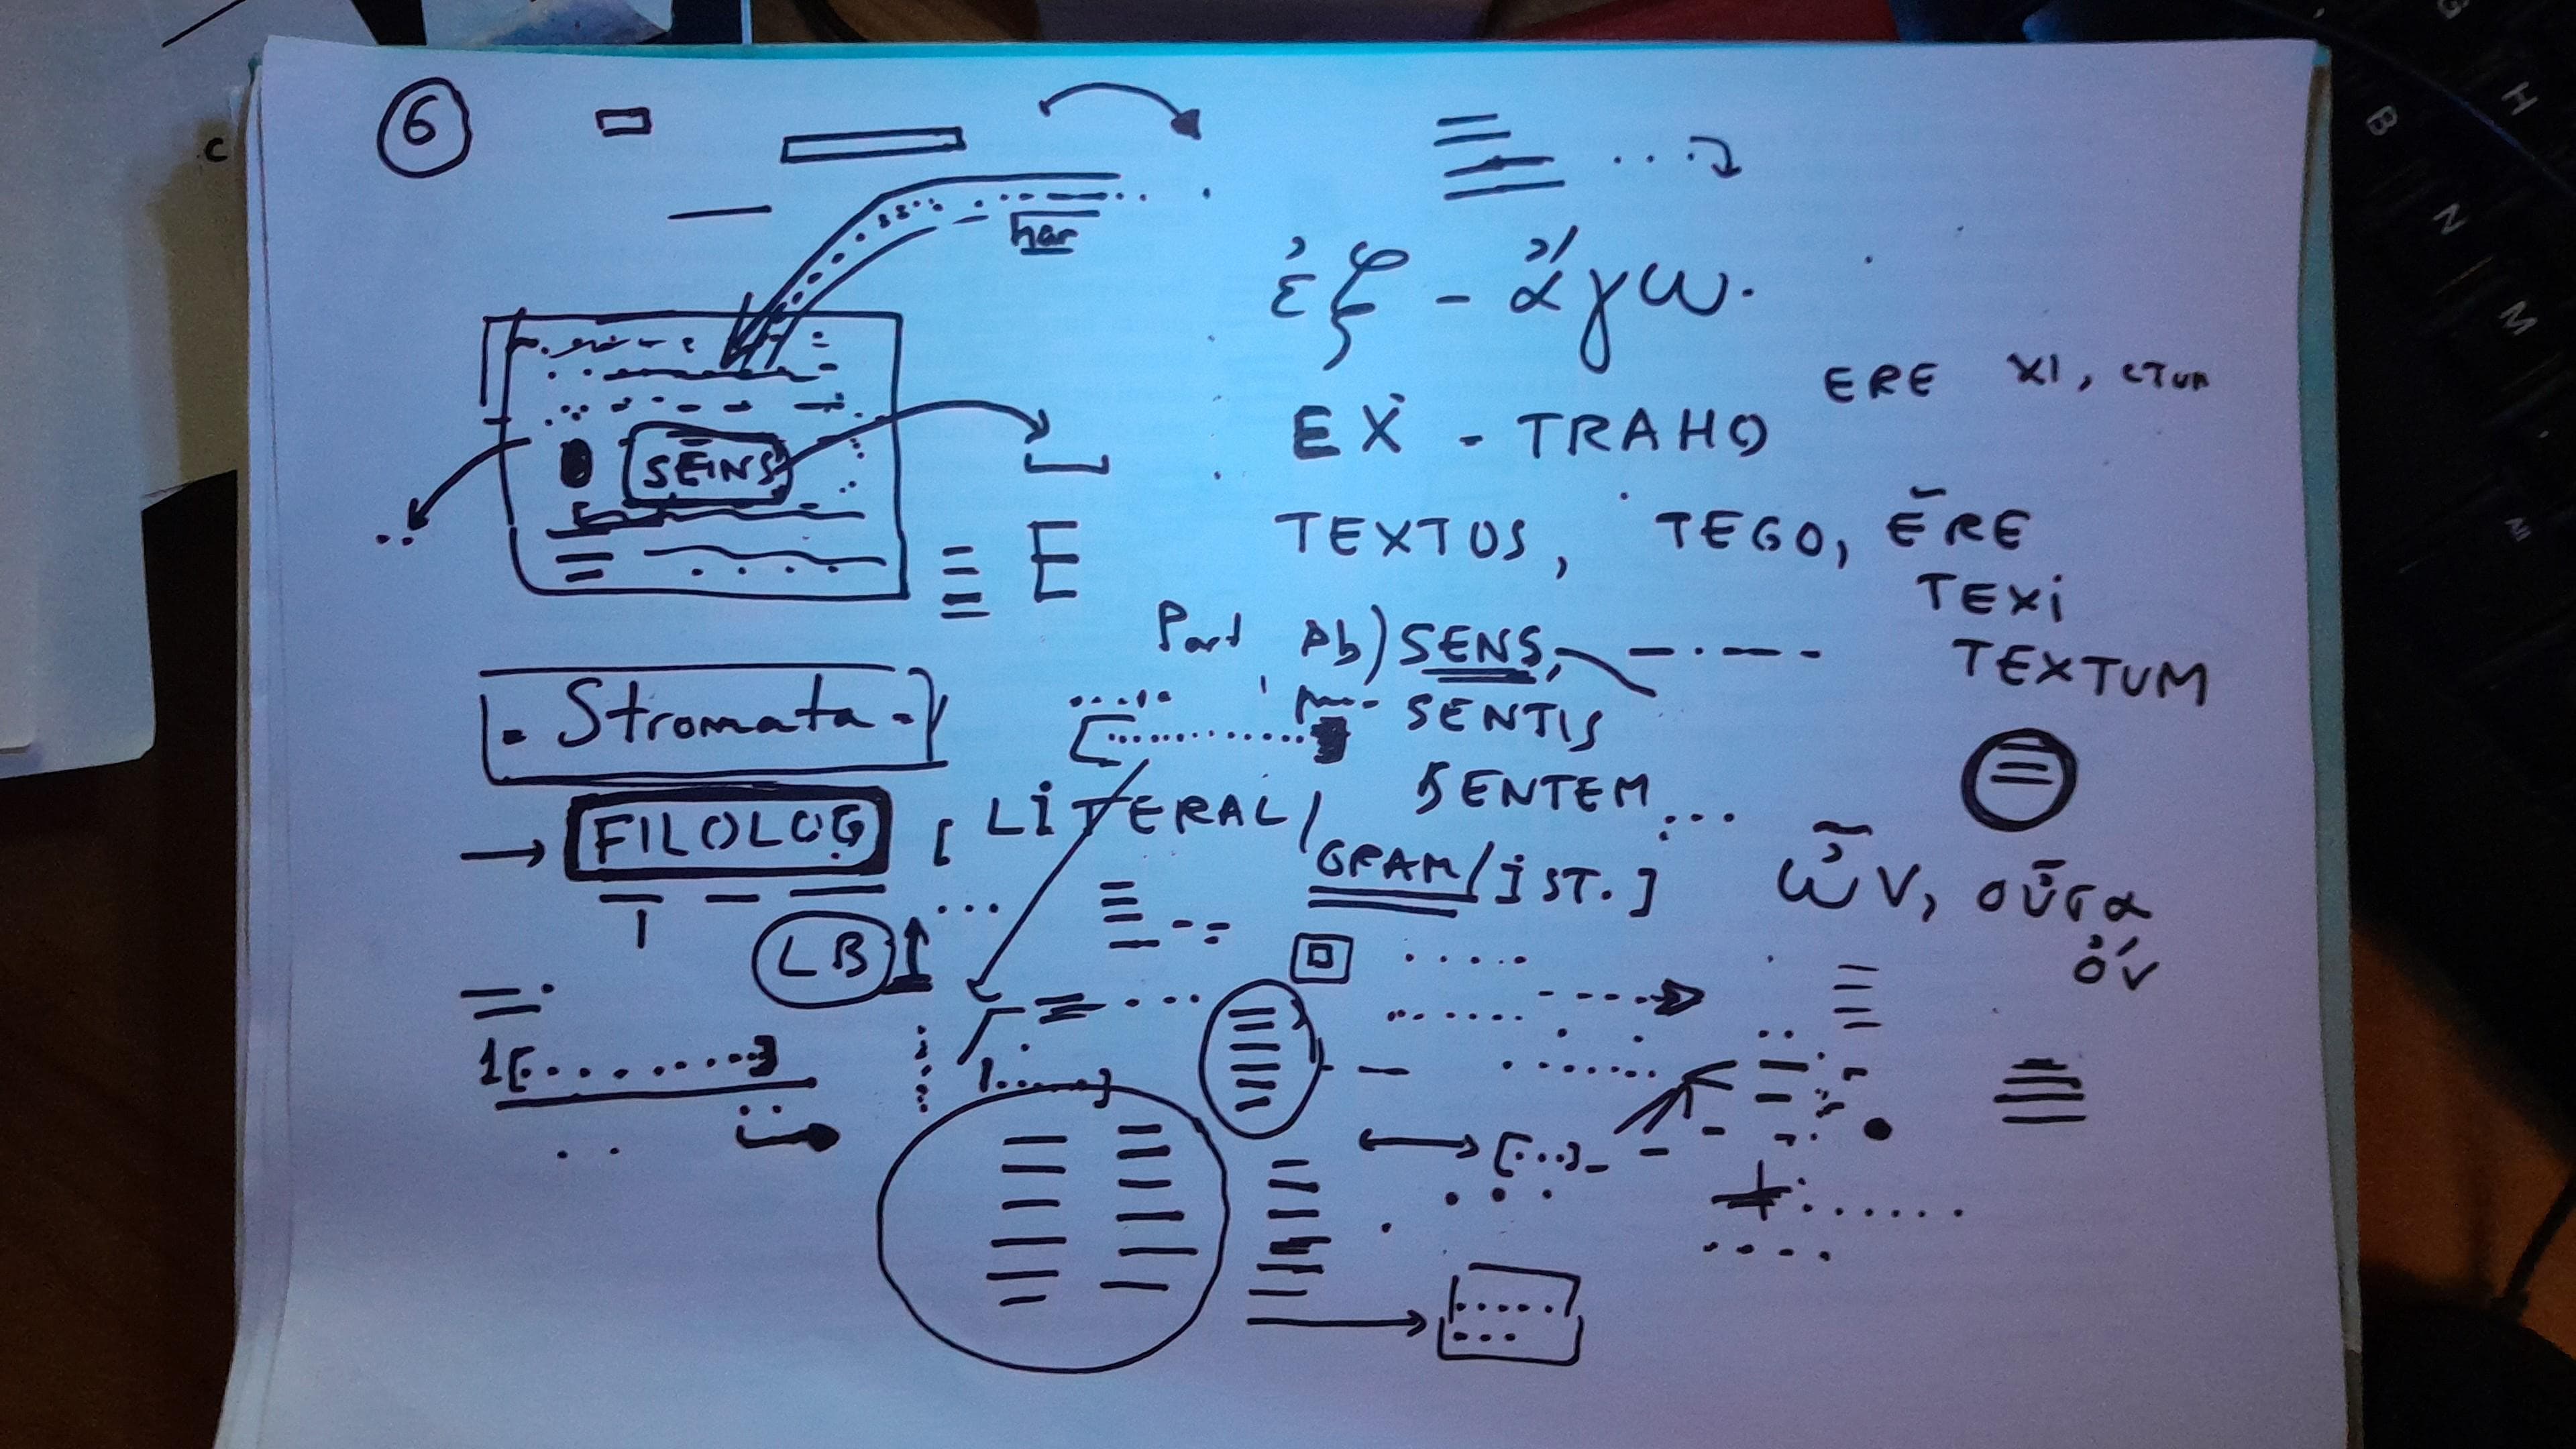 6
har
ἐξ - ἄγω.
ERE XI, CTUM
EX - TRAHO
SEINS
TEXTUS, TEGO, ĒRE
TEXI
E
Part Ab) SENS,
TEXTUM
. Stromata -
SENTIS
SENTEM
→ FILOLOG [ LITERAL/
GRAM/IST.]
ὤν, οὖσα
ὄν
LB
1[.......]